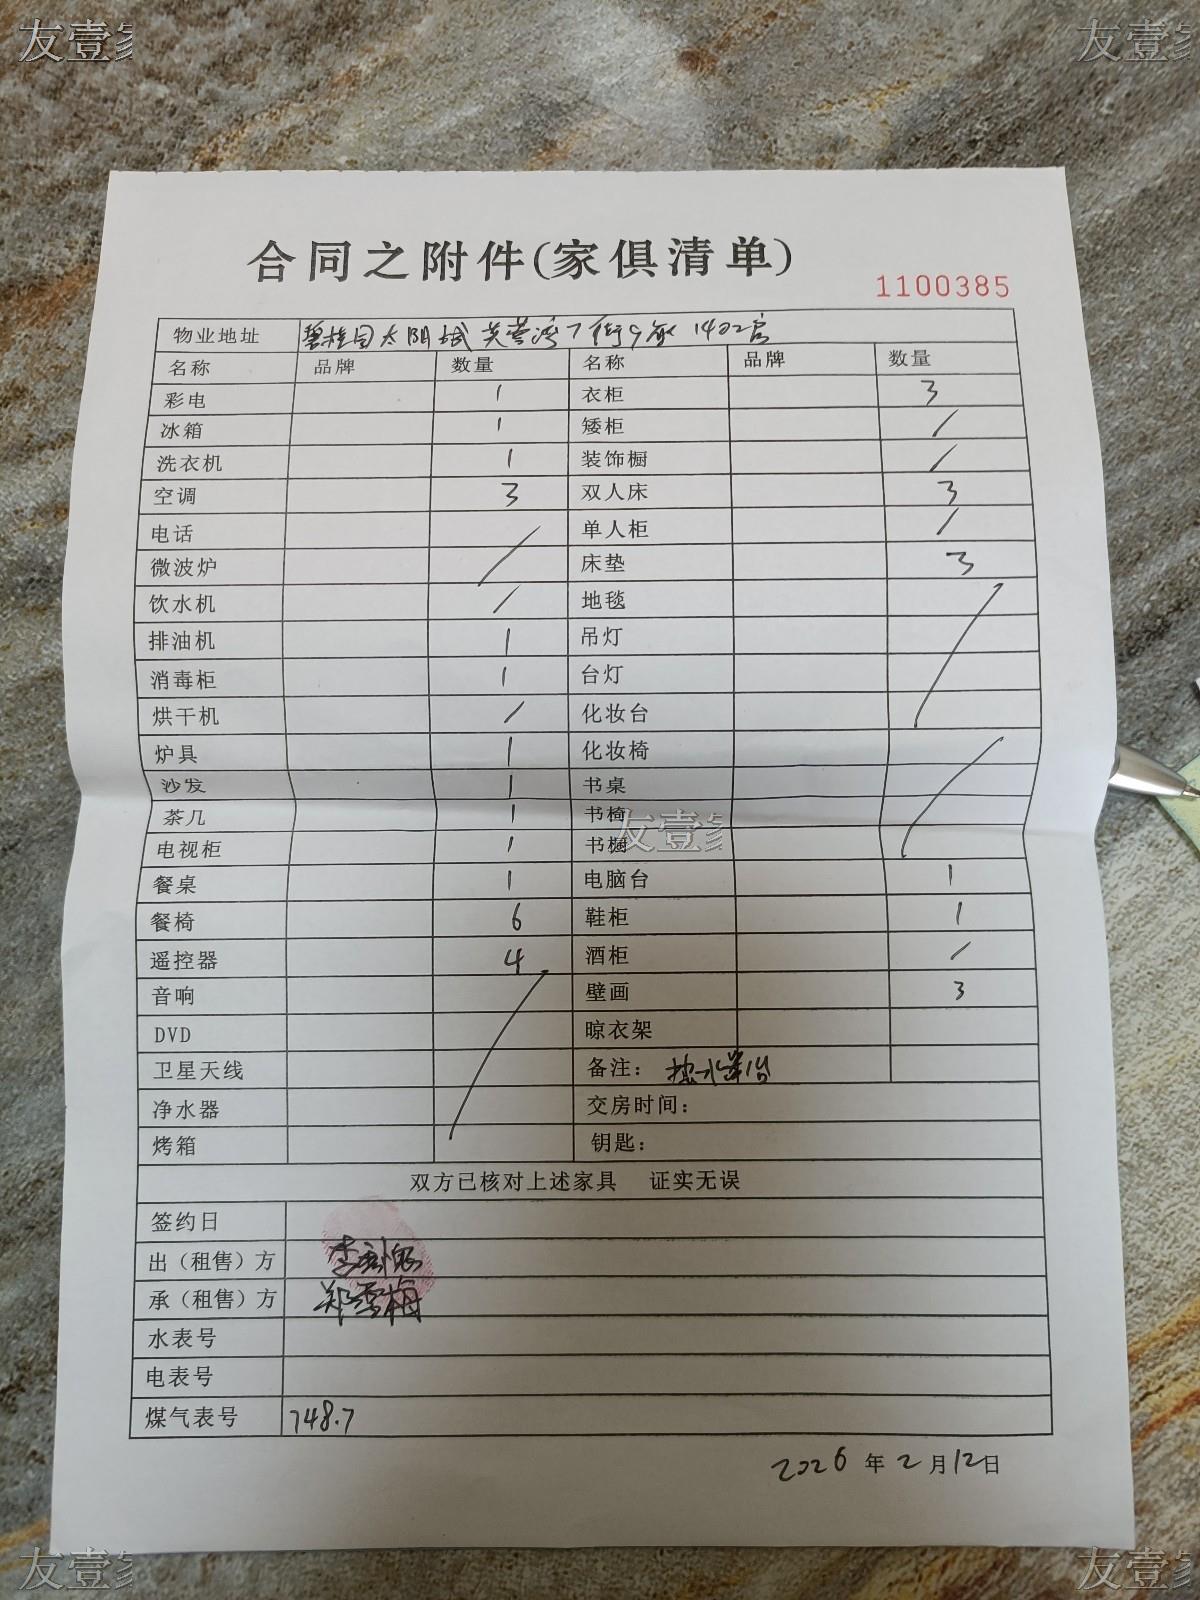 友壹家
友壹家
合同之附件(家俱清单)
1100385
物业地址 碧桂园太阳城芙蓉湾7街9座1402房
名称 品牌 数量 名称 品牌 数量
彩电 1 衣柜 3
冰箱 1 矮柜 /
洗衣机 1 装饰橱 /
空调 3 双人床 3
电话 / 单人柜 /
微波炉 床垫 3
饮水机 / 地毯 /
排油机 1 吊灯
消毒柜 1 台灯
烘干机 / 化妆台
炉具 1 化妆椅 /
沙发 1 书桌
茶几 1 书椅
友壹家
电视柜 1 书橱
餐桌 1 电脑台 1
餐椅 6 鞋柜 1
遥控器 4 酒柜 /
音响 / 壁画 3
DVD 晾衣架
卫星天线 备注：热水器1台
净水器 交房时间：
烤箱 钥匙：
双方已核对上述家具 证实无误
签约日
出（租售）方
承（租售）方 郑雪梅
水表号
电表号
煤气表号 748.7
2026年2月12日
友壹家
友壹家